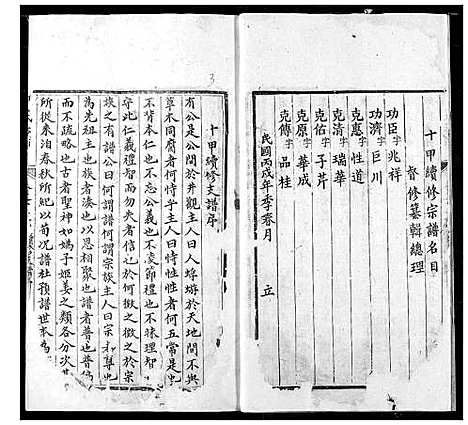 十甲續修宗譜名目
督修纂輯總理
功臣 兆祥
功濟 巨川
克惠 性道
克清 瑞華
克佑 子芹
克原 華成
克傳 品桂
民國丙戍年季春月 立
十甲續修支譜序
有公是公觀於井觀主人曰人蜉蝣於天地間不與
草木同腐者何恃乎主人曰恃性性者何五常是也
不背本仁也不忘公義也不亥節禮也不昧理智
守此仁義禮智而勿失者信也於何徵之徵之於宗
族之有譜公曰何謂譜何謂宗族主人曰宗和尊也
為先祖主也族者以恩相聚也譜者普也普徧
而不疏略也古者聖神如媯子姬姜之類各分次其
所從來洎春秋所紀以荀况譜杜預譜世本為